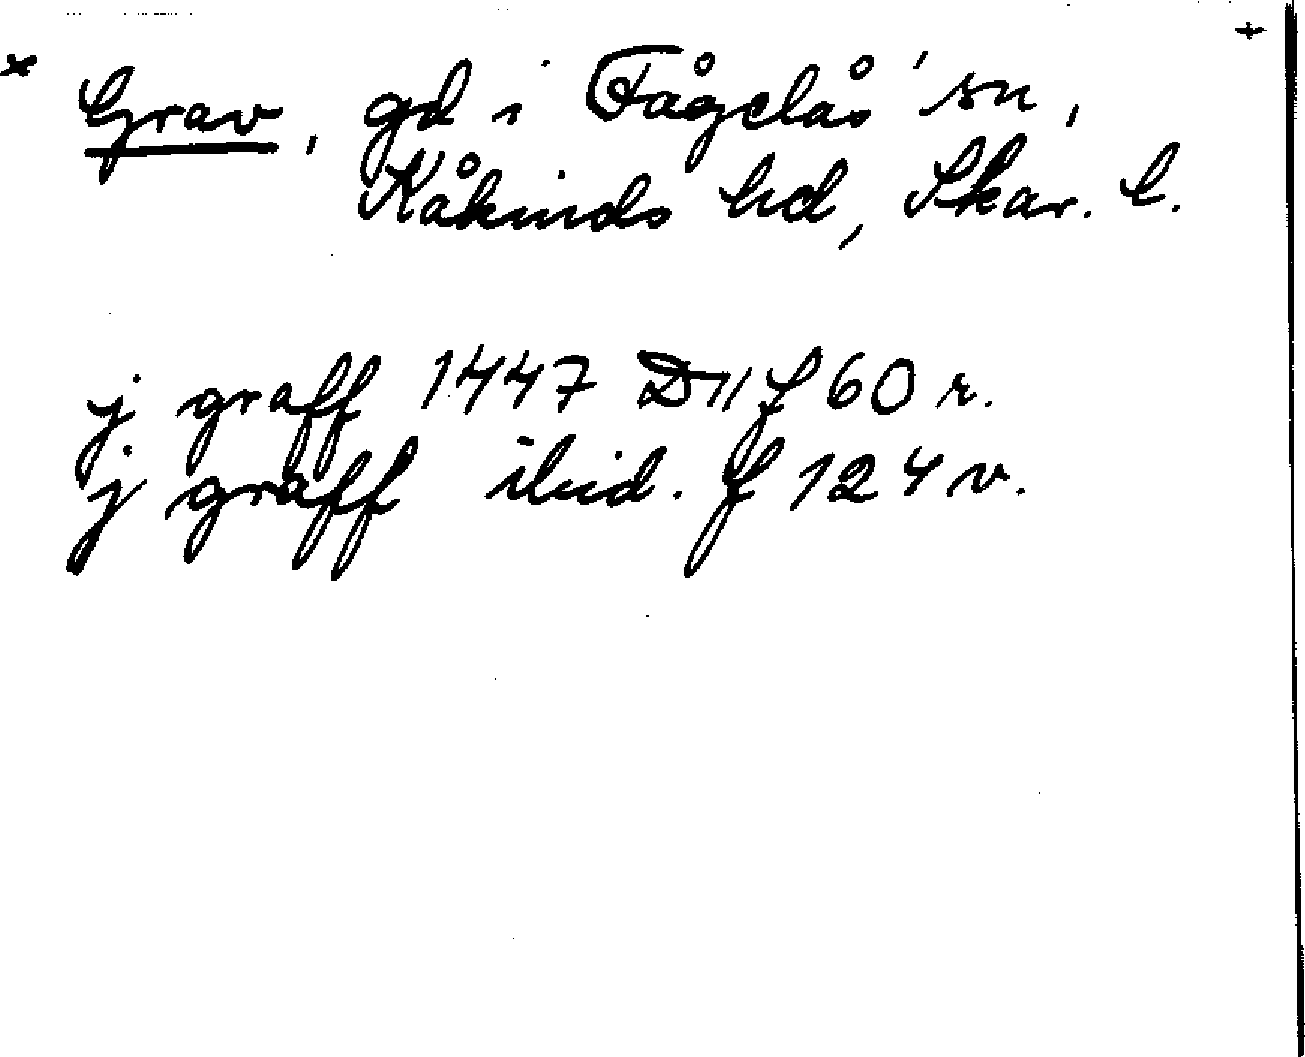 × Grav, gd i Fågelås' sn, +
Kåkinds hd, Skar. l.
j graff 1447 D 11 f 60 r.
j graff ibid. f 124 v.